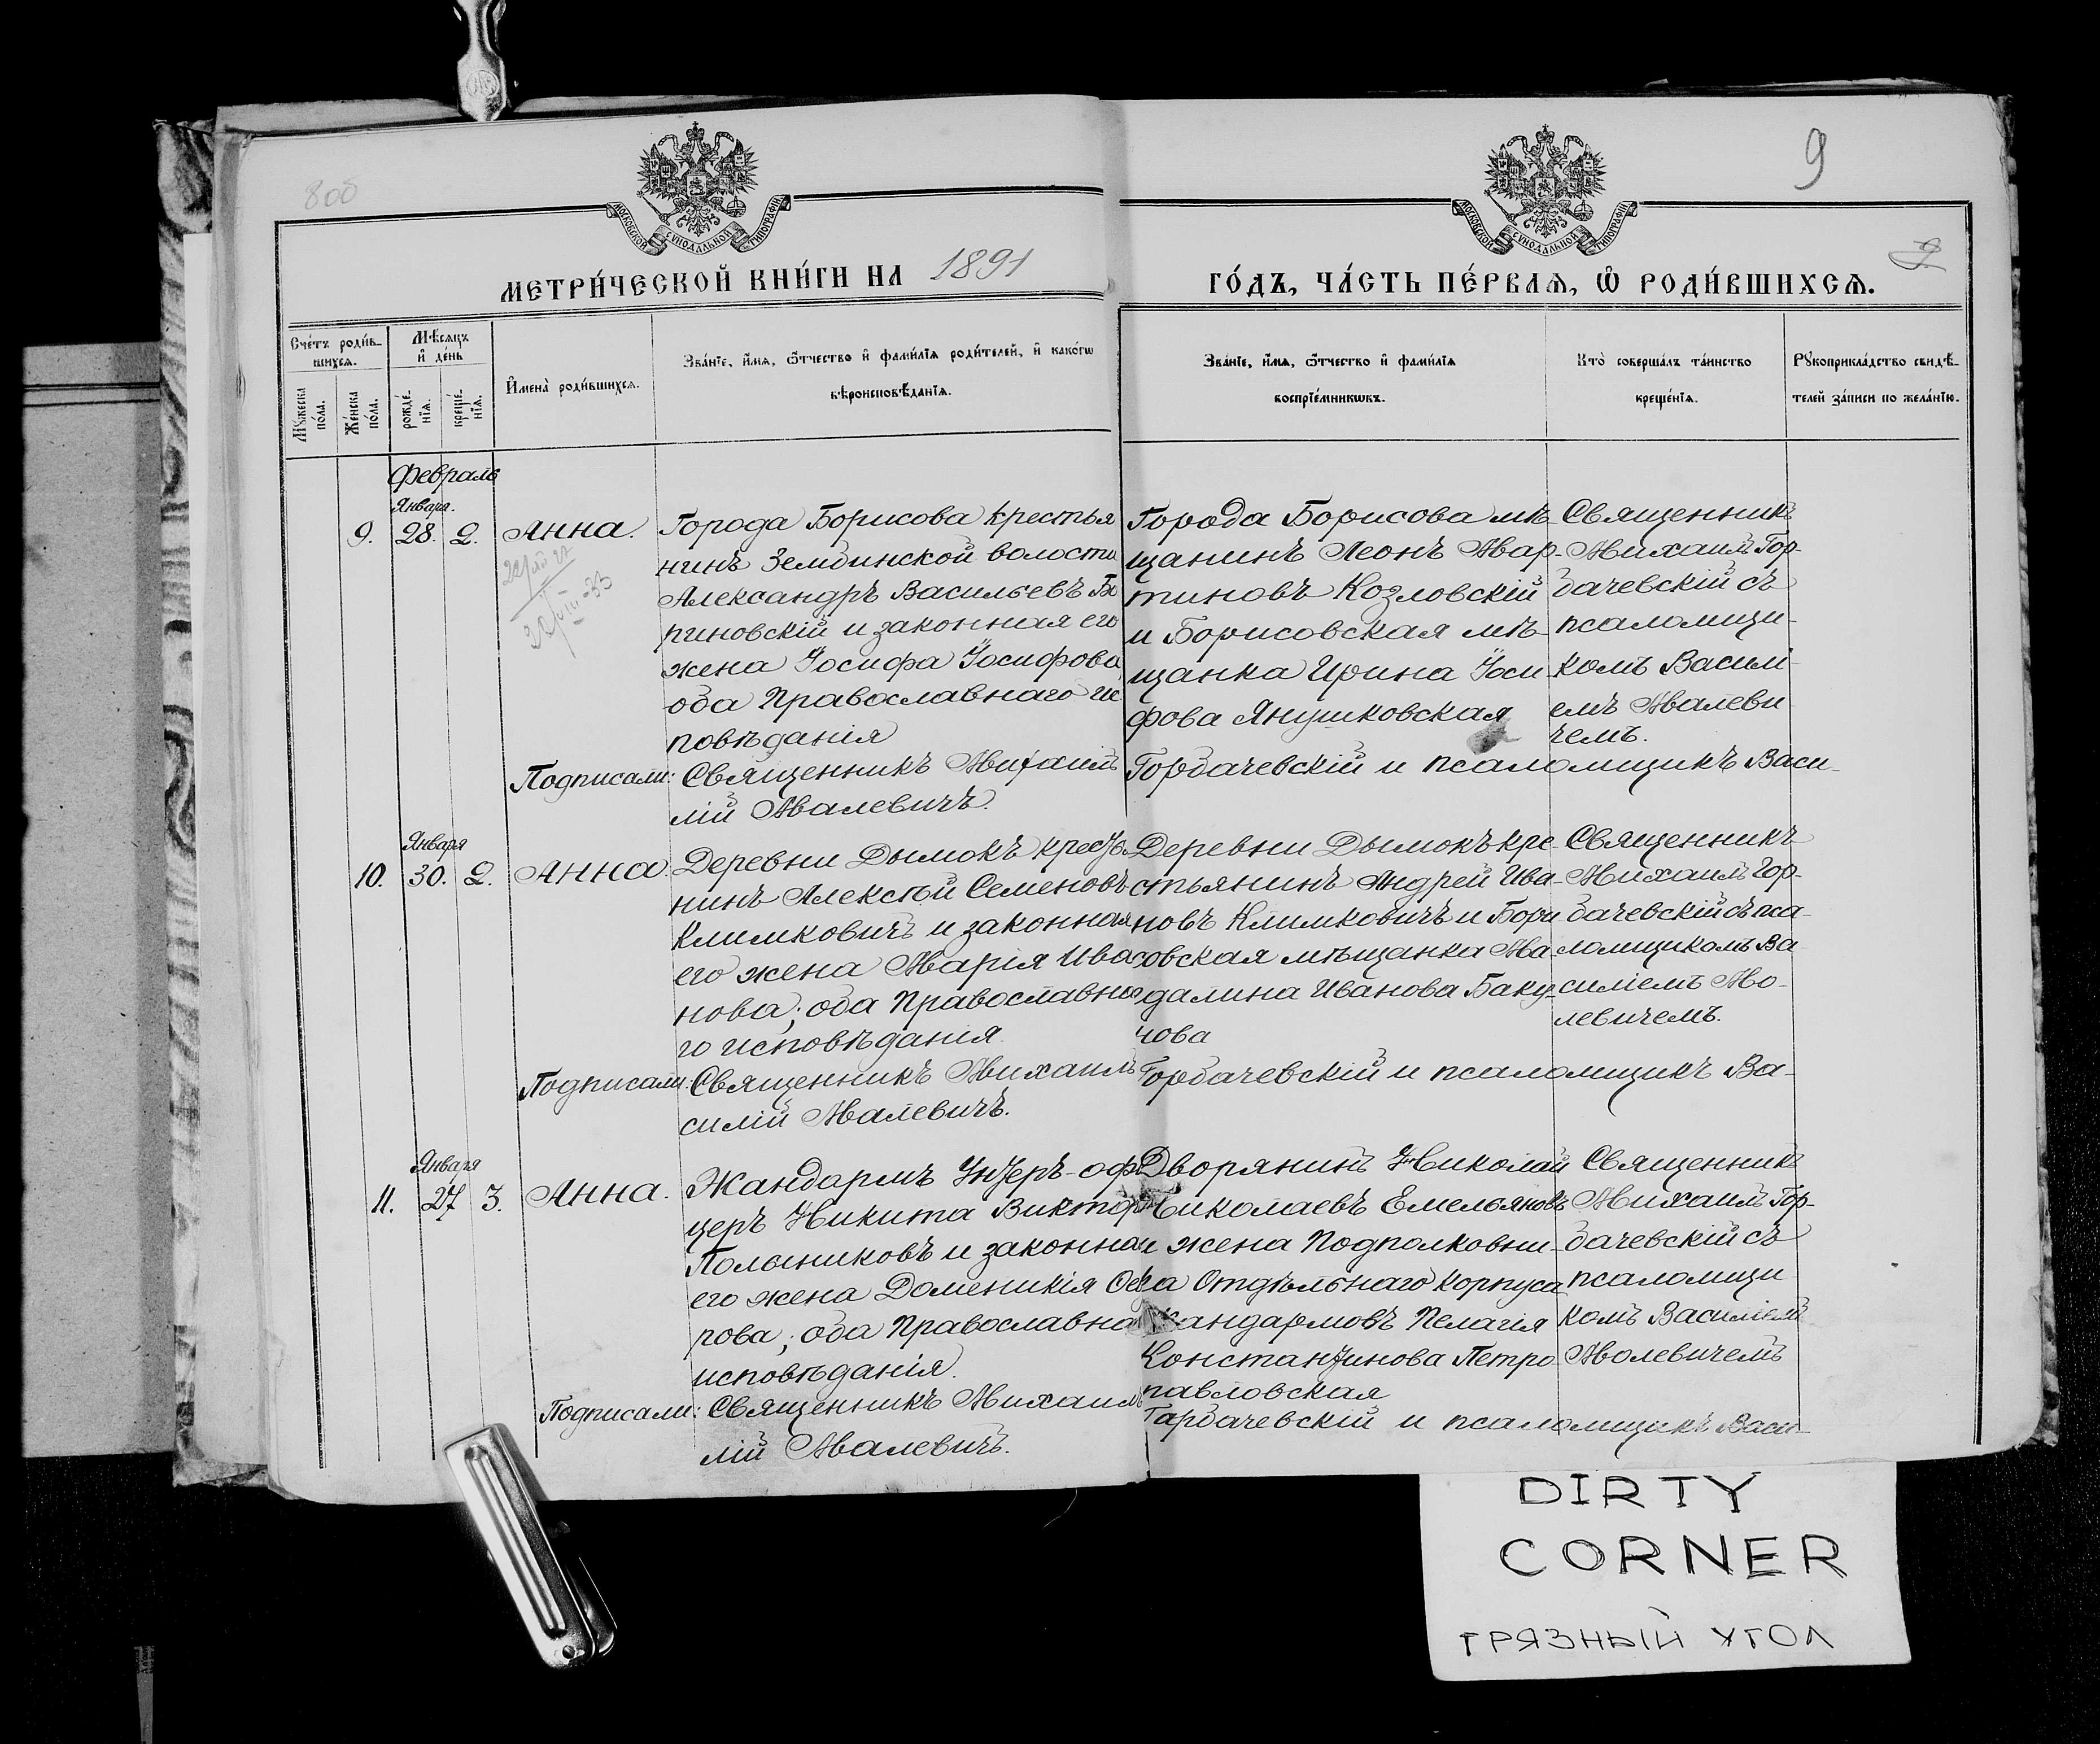 800
9
МОСКОВСКОЙ СѴНОДАЛЬНОЙ ТИПОГРАФІИ
МОСКОВСКОЙ СѴНОДАЛЬНОЙ ТИПОГРАФІИ
МЕТРИ́ЧЕСКОЙ КНИ́ГИ НА 1891
ГО́ДЪ, ЧА́СТЬ ПЕ́РВАѦ, Ѡ҆ РОДИ́ВШИХСѦ.
9.
Сче́тъ роди́в-
шихсѧ.
Мꙋжеска
по́ла.
Же́нска
по́ла.
Мѣ́сѧцъ
и҆ де́нь
рожде́-
нїѧ.
креще́-
нїѧ.
И҆мена̀ роди́вшихсѧ.
Зва́нїе, и҆́мѧ, ѻ҆́тчество и҆ фами́лїѧ роди́телей, и҆ како́гѡ
вѣроисповѣ́данїѧ.
Зва́нїе, и҆́мѧ, ѻ҆́тчество и҆ фами́лїѧ
воспрїе́мникѡвъ.
Кто̀ соверша́лъ та́инство
креще́нїѧ.
Рꙋкоприкла́дство свидѣ́-
телей за́писи по жела́нїю.
Февраль
Января.
9. 28. 2. Анна.
Города Борисова крестья
нинъ Зембинской волости
Александръ Васильевъ
пиновскій и законная его
жена Іосифа Іосифова,
оба Православнаго ис
повѣданія
Города Борисова мѣ-
щанинъ Леонъ Мар-
тиновъ Козловскій
и Борисовская мѣ-
щанка Ирина Іоси
фова Янушковская
Священникъ
Михаилъ Гор-
бачевскій съ
псаломщи-
комъ Василі-
емъ Малеви
чемъ.
Подписали: Священникъ Михаилъ Горбачевскій и псаломщикъ Васи-
лій Малевичъ.
Января
10. 30. 2. Анна
Деревни Дымокъ крестья
нинъ Алексѣй Семеновъ
Климковичъ и законная
его жена Марія Ива
нова; оба Православна
го исповѣданія.
Деревни Дымокъ кре
стьянинъ Андрей Ива-
новъ Климковичъ и Бори
совская мѣщанка Ма-
далина Иванова Баку-
чова
Священникъ
Михаилъ Гор-
бачевскій съ пса-
ломщикомъ Ва
силіемъ Мо-
левичемъ.
Подписали: Священникъ Михаилъ Горбачевскій и псаломщикъ Ва-
силій Малевичъ.
Января
11. 27 3. Анна.
Жандармъ Унтеръ-офи
церъ Никита Викторов
Полыниковъ и законная
его жена Доменикія
рова; оба Православна
исповѣданія.
Дворянинъ Николай
Николаевъ Емельяновъ
и жена Подполковни-
ка Отдѣльнаго Корпуса
Жандармовъ Пелагія
Константинова Петро
павловская
Священникъ
Михаилъ Гор-
бачевскій съ
псаломщи
комъ Василіемъ
Молевичемъ
Подписали: Священникъ Михаилъ Гарбачевскій и псаломщикъ Васи-
лій Малевичъ.
DIRTY
CORNER
ГРЯЗНЫЙ УГОЛ